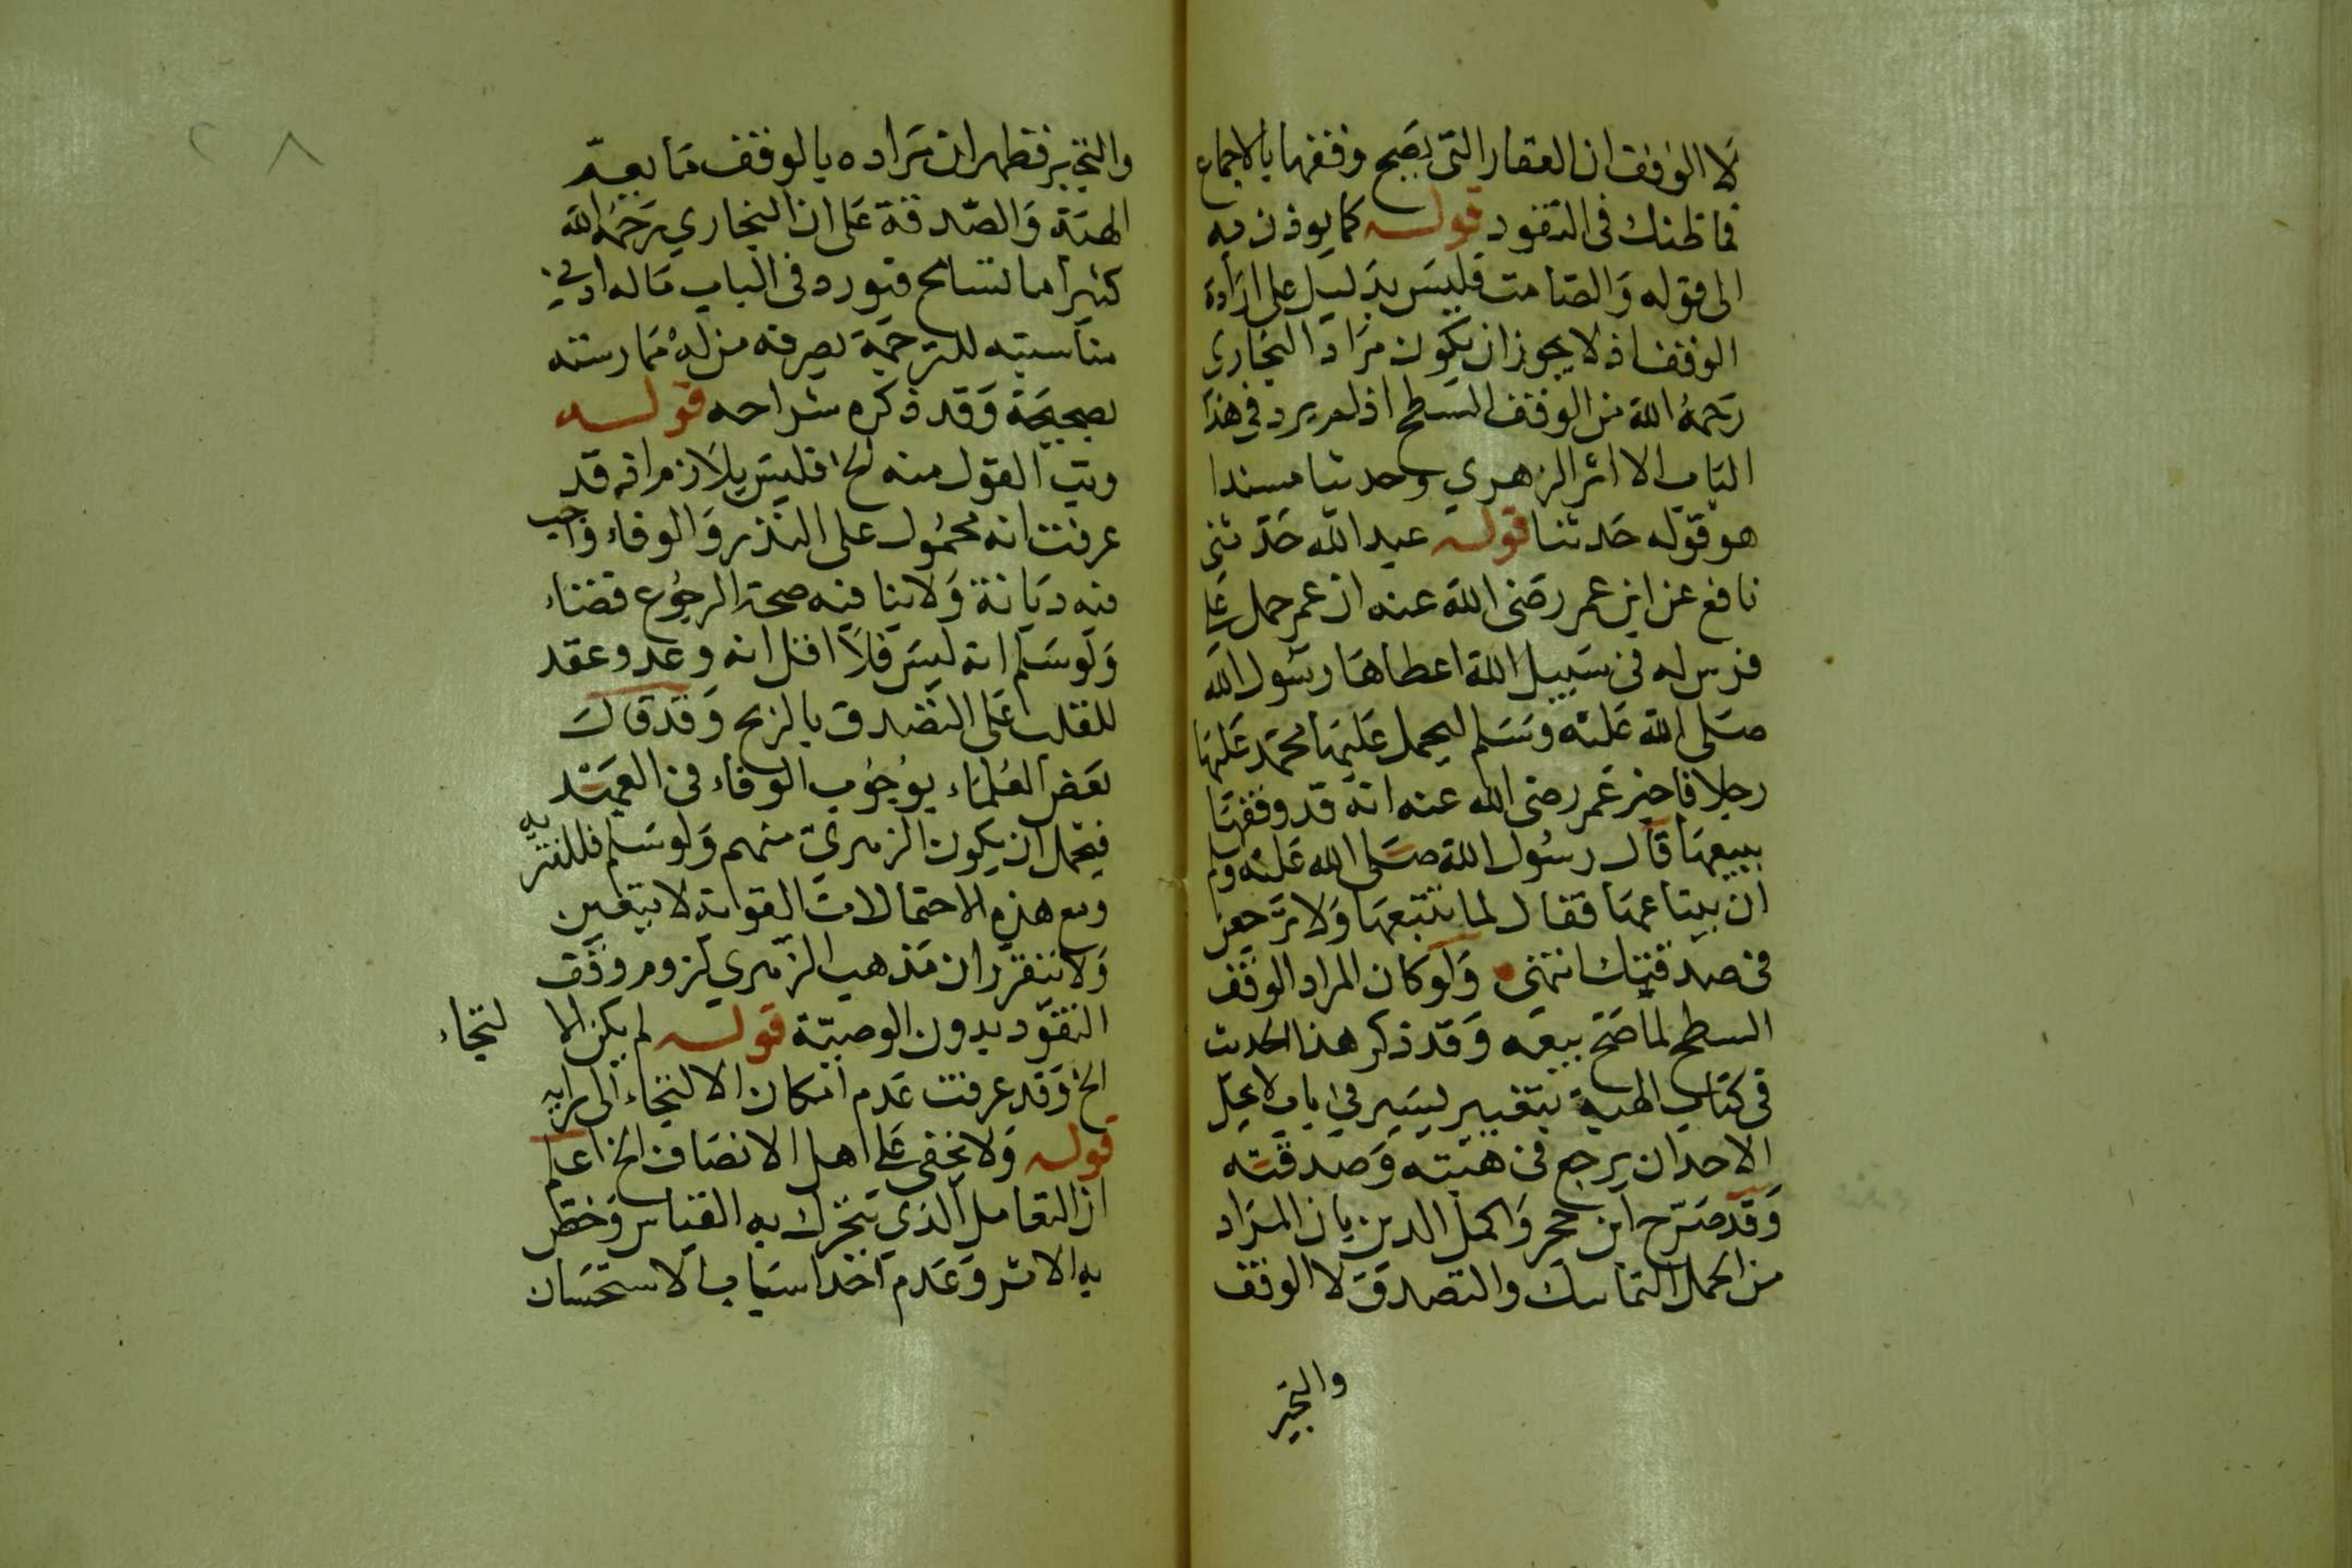 لا الوقف ان العقار التى يصح وقفها بالاجماع
فما ظنك فى النقود قوله كما يوذن به
الى قوله والصامت فليس بدليل على ارادة
الوقف اذ لا يجوز ان يكون مراد البخارى
رحمه الله من الوقف المسطح اذ لم يرد في هذا
الباب الا اثر الزهري وحديثا مسندا
هو قوله حدثنا قوله عبد الله حدثنى
نافع عن ابن عمر رضى الله عنه ان عمر حمل على
فرس له فى سبيل الله اعطاها رسول الله
صلى الله عليه وسلم ليحمل عليها محمد عليها
رجلا فاخبر عمر رضى الله عنه انه قد وقفها
يبيعها قال رسول الله صلى الله عليه وسلم
ان يبتاعها فقال لها تبتعها ولا ترجعن
فى صدقتك انتهى ولو كان المراد الوقف
السطح لما صح بيعه وقد ذكر هذا الحديث
فى كتاب الهبة بتغيير يسير في باب لا يحل
لاحد ان يرجع فى هبته وصدقته
وقد صرح ابن حجر واكمل الدين بان المراد
من الحمل التمليك والتصدق لا الوقف
والتخير
والتخيير فظهر ان مراده بالوقف ما يعم
الهبة والصدقة على ان البخاري رحمه الله
كثيرا ما تسامح فيورد فى الباب ما له ادنى
مناسبته للترجمة يعرفه من له ممارسته
بصحيحه وقد ذكره شراحه قوله
وبت القول منه الخ فليس بلازم انه قد
عرفت انه محمول على النذر والوفاء واجب
فيه ديانة ولا ينافيه صحة الرجوع قضاء
ولو سلم انه ليس فلا اقل انه وعد وعقد
للقلب على التصدق بالربح وقد قال
بعض العلماء بوجوب الوفاء فى العهد
فيحمل ان يكون الزهري منهم ولو سلم فللغيريه
ومع هذه الاحتمالات القوية لا يتعين
ولا يتقرر ان مذهب الزهري لزوم وقف
النقود بدون الوصية قوله لم يكن الا لتجاء
الخ وقد عرفت عدم امكان الالتجاء الى رايه
قوله ولا يخفى على اهل الانصاف الخ اعلم
ان التعامل الذي يترك به القياس وخص
به الاثر وعدم احد اسباب الاستحسان